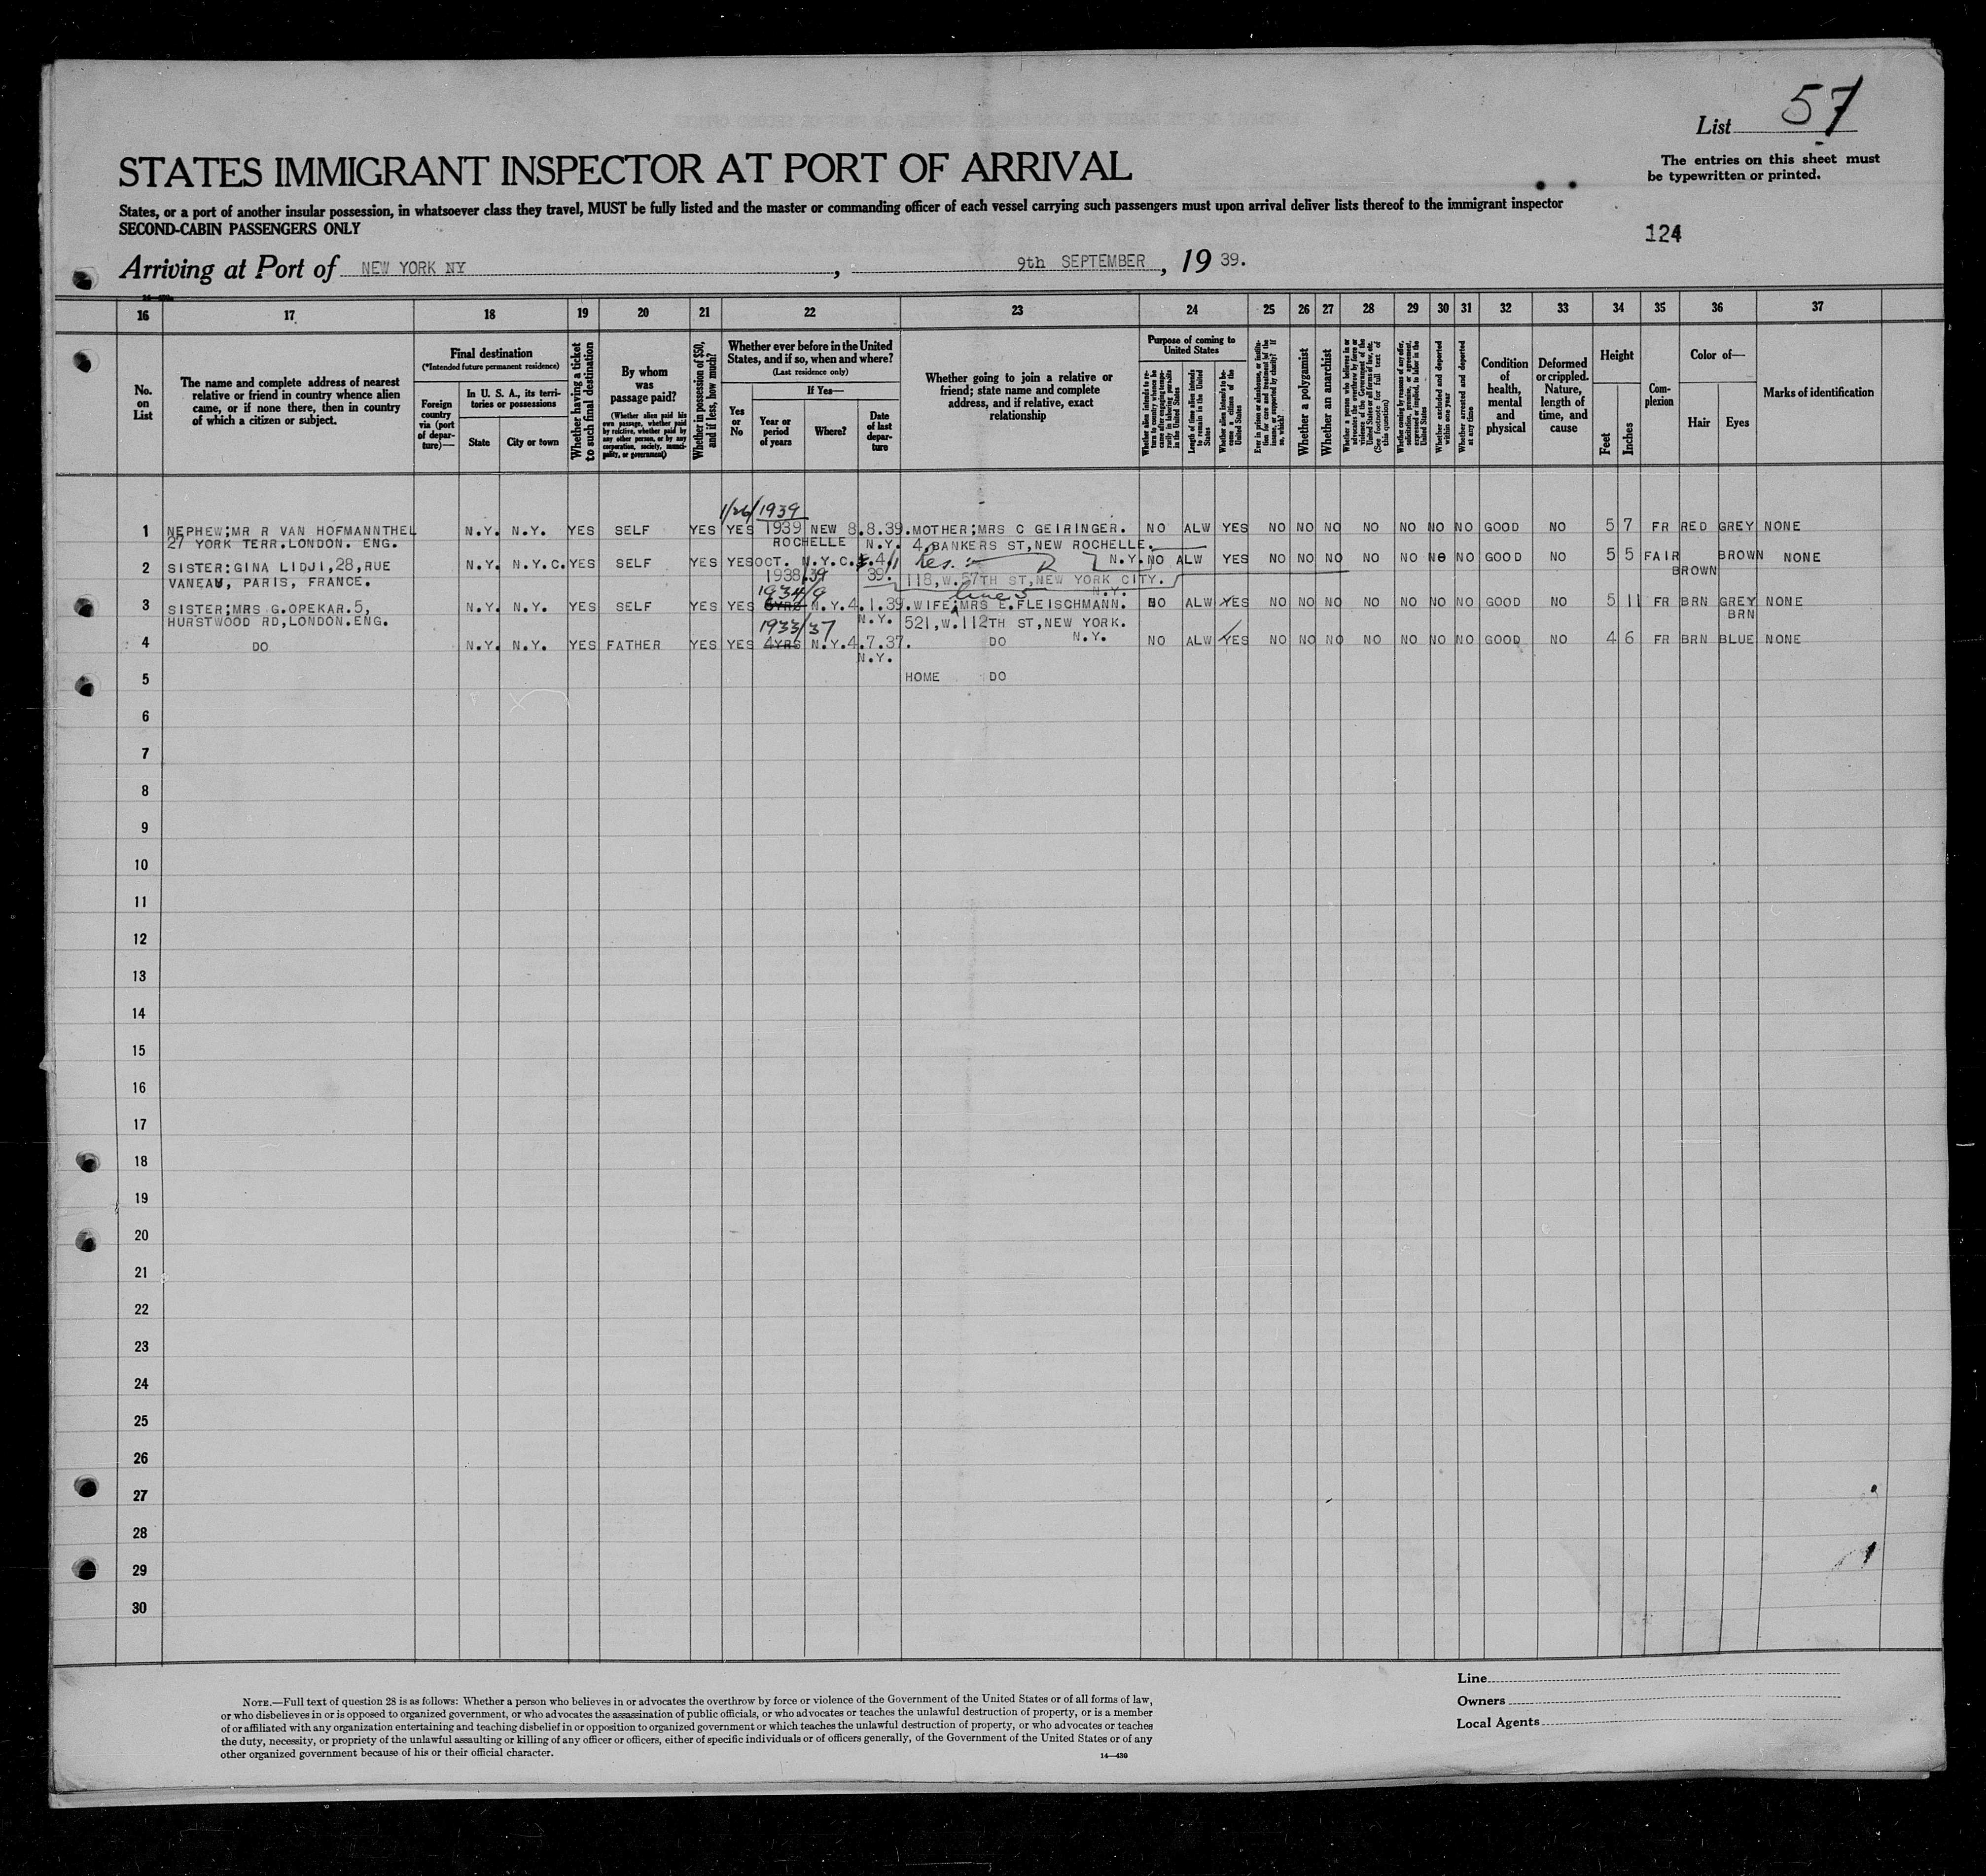 List 57
The entries on this sheet must
be typewritten or printed.
STATES IMMIGRANT INSPECTOR AT PORT OF ARRIVAL
States, or a port of another insular possession, in whatsoever class they travel, MUST be fully listed and the master or commanding officer of each vessel carrying such passengers must upon arrival deliver lists thereof to the immigrant inspector
SECOND-CABIN PASSENGERS ONLY
124
Arriving at Port of NEW YORK NY, 9th SEPTEMBER, 19 39.
16 17 18 19 20 21 22 23 24 25 26 27 28 29 30 31 32 33 34 35 36 37
No. on List
The name and complete address of nearest relative or friend in country whence alien came, or if none there, then in country of which a citizen or subject.
Final destination
(*Intended future permanent residence)
Foreign country via (port of departure)—
In U. S. A., its territories or possessions
State
City or town
Whether having a ticket to such final destination
By whom was passage paid?
(Whether alien paid his own passage, whether paid by relative, whether paid by any other person, or by any corporation, society, municipality, or government)
Whether in possession of $50, and if less, how much?
Whether ever before in the United States, and if so, when and where?
(Last residence only)
Yes or No
If Yes—
Year or period of years
Where?
Date of last departure
Whether going to join a relative or friend; state name and complete address, and if relative, exact relationship
Purpose of coming to United States
Length of time alien intends to remain in the United States
Whether alien intends to become a citizen of the United States
Whether a polygamist
Whether an anarchist
Whether excluded and deported within one year
Whether arrested and deported at any time
Condition of health, mental and physical
Deformed or crippled. Nature, length of time, and cause
Height
Feet
Inches
Complexion
Color of—
Hair
Eyes
Marks of identification
1/26/1939
1 NEPHEW;MR R VAN HOFMANNTHEL N.Y. N.Y. YES SELF YES YES 1939 NEW 8.8.39. MOTHER;MRS C GEIRINGER. NO ALW YES NO NO NO NO NO NO NO GOOD NO 5 7 FR RED GREY NONE
27 YORK TERR.LONDON. ENG. ROCHELLE N.Y. 4,BANKERS ST,NEW ROCHELLE.
2 SISTER:GINA LIDJI,28,RUE N.Y. N.Y.C. YES SELF YES YES OCT. N.Y.C. N.Y. NO ALW YES NO NO NO NO NO NO NO GOOD NO 5 5 FAIR BROWN NONE
VANEAU, PARIS, FRANCE. 1938/39 39. 118,W.57TH ST,NEW YORK CITY. BROWN
1934/9 N.Y.
3 SISTER;MRS G.OPEKAR.5, N.Y. N.Y. YES SELF YES YES 6YRS N.Y. 4.1.39. WIFE;MRS E.FLEISCHMANN. NO ALW YES NO NO NO NO NO NO NO GOOD NO 5 11 FR BRN GREY NONE
HURSTWOOD RD,LONDON.ENG. N.Y. 521,W.112TH ST,NEW YORK. BRN
1933/37 N.Y.
4 DO N.Y. N.Y. YES FATHER YES YES 4YRS N.Y. 4.7.37. DO NO ALW YES NO NO NO NO NO NO NO GOOD NO 4 6 FR BRN BLUE NONE
N.Y.
5 HOME DO
6
7
8
9
10
11
12
13
14
15
16
17
18
19
20
21
22
23
24
25
26
27
28
29
30
Line
Owners
Local Agents
NOTE.—Full text of question 28 is as follows: Whether a person who believes in or advocates the overthrow by force or violence of the Government of the United States or of all forms of law,
or who disbelieves in or is opposed to organized government, or who advocates the assassination of public officials, or who advocates or teaches the unlawful destruction of property, or is a member
of or affiliated with any organization entertaining and teaching disbelief in or opposition to organized government or which teaches the unlawful destruction of property, or who advocates or teaches
the duty, necessity, or propriety of the unlawful assaulting or killing of any officer or officers, either of specific individuals or of officers generally, of the Government of the United States or of any
other organized government because of his or their official character.
14—430